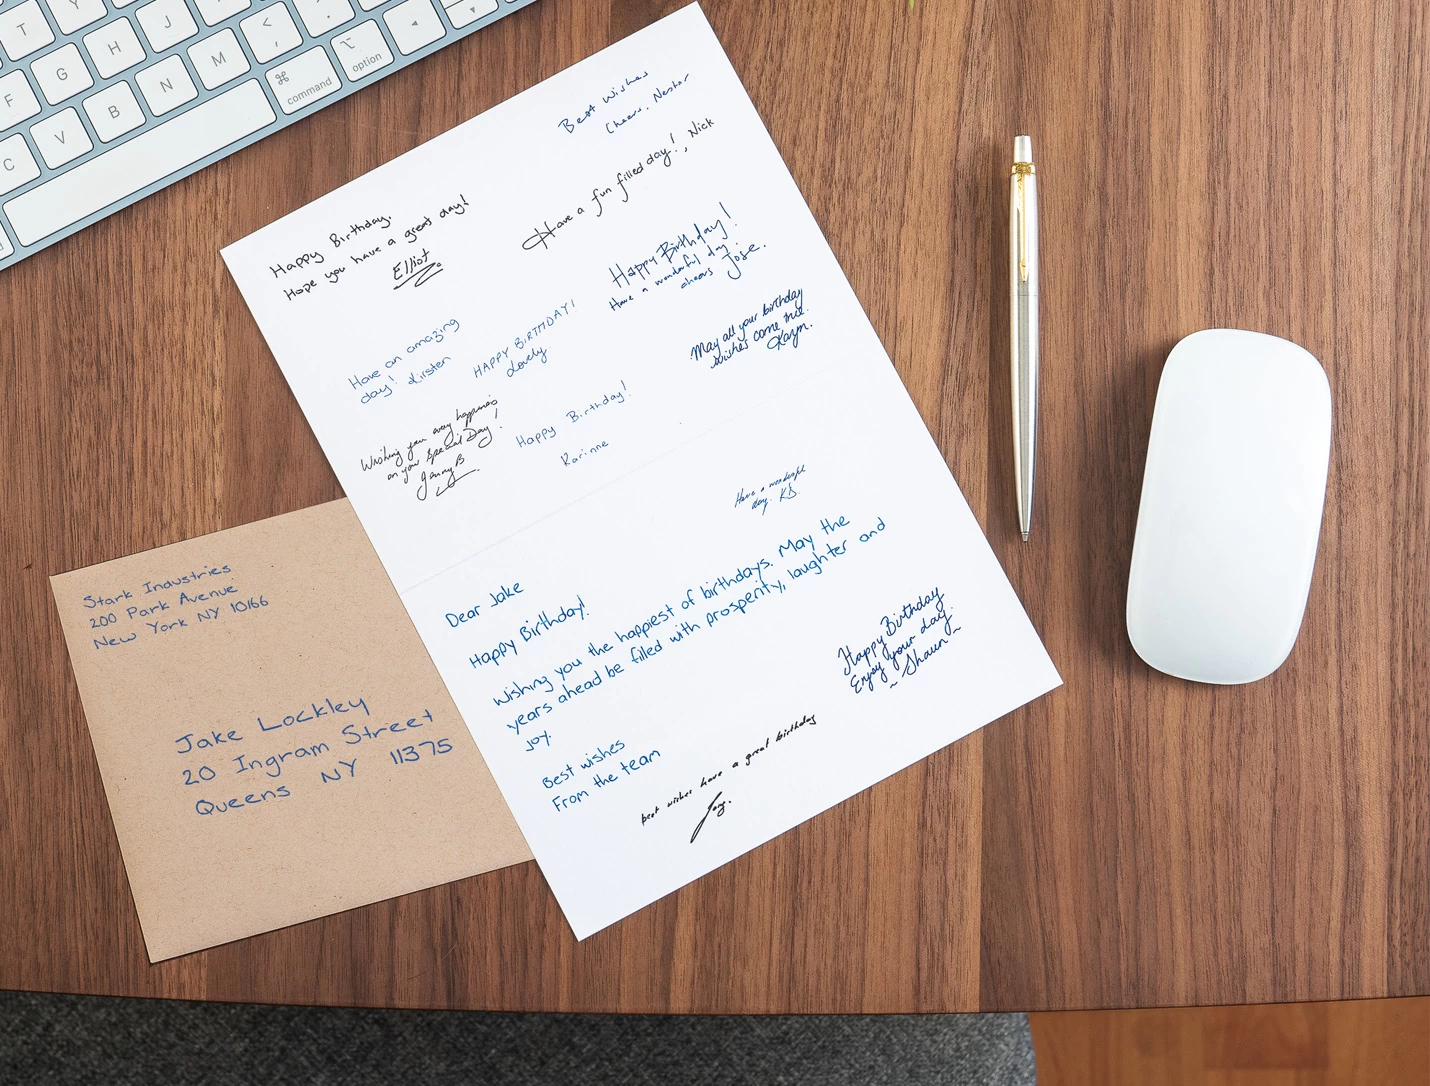 T Y
G H J < ,
F V B N M ⌘ command ⌥ option
C
Best wishes
Cheers. Nestor
Have a fun filled day!, Nick
Happy Birthday.
Hope you have a great day!
Elliot
Happy Birthday!
Have a wonderful day
cheers Jose.
Have an amazing
day! Kirsten
HAPPY BIRTHDAY!
Lovely.
May all your birthday
wishes come true.
Karyn.
Wishing you every happiness
on your special Day!
Jenny B
Happy Birthday!
Korinne
Have a wonderful
day. KD.
Dear Jake
Happy Birthday!
Wishing you the happiest of birthdays. May the
years ahead be filled with prosperity, laughter and
joy.
Best wishes
From the team
Happy Birthday
Enjoy your day.
~ Shaun ~
best wishes have a great birthday
Jay.
Stark Industries
200 Park Avenue
New York NY 10166
Jake Lockley
20 Ingram Street
Queens NY 11375